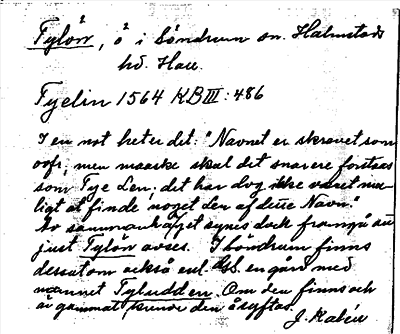 Tylön, ö i Söndrum sn. Halmstads
hd. Hall.
Tyelin 1564 KB III: 486
I en not heter det: "Navnet er skrevet som
ovfr; men maaske skal det snarere forstaas
som Tye Len; det har dog ikke været mu-
ligt at finde noget Len af dette Navn."
Av sammanhanget synes dock framgå att
just Tylön avses. I Söndrum finns
dessutom också enl. GS. en gård med
namnet Tyludden. Om den finns och
är gammal kunde den åsyftas.
J. Kalén